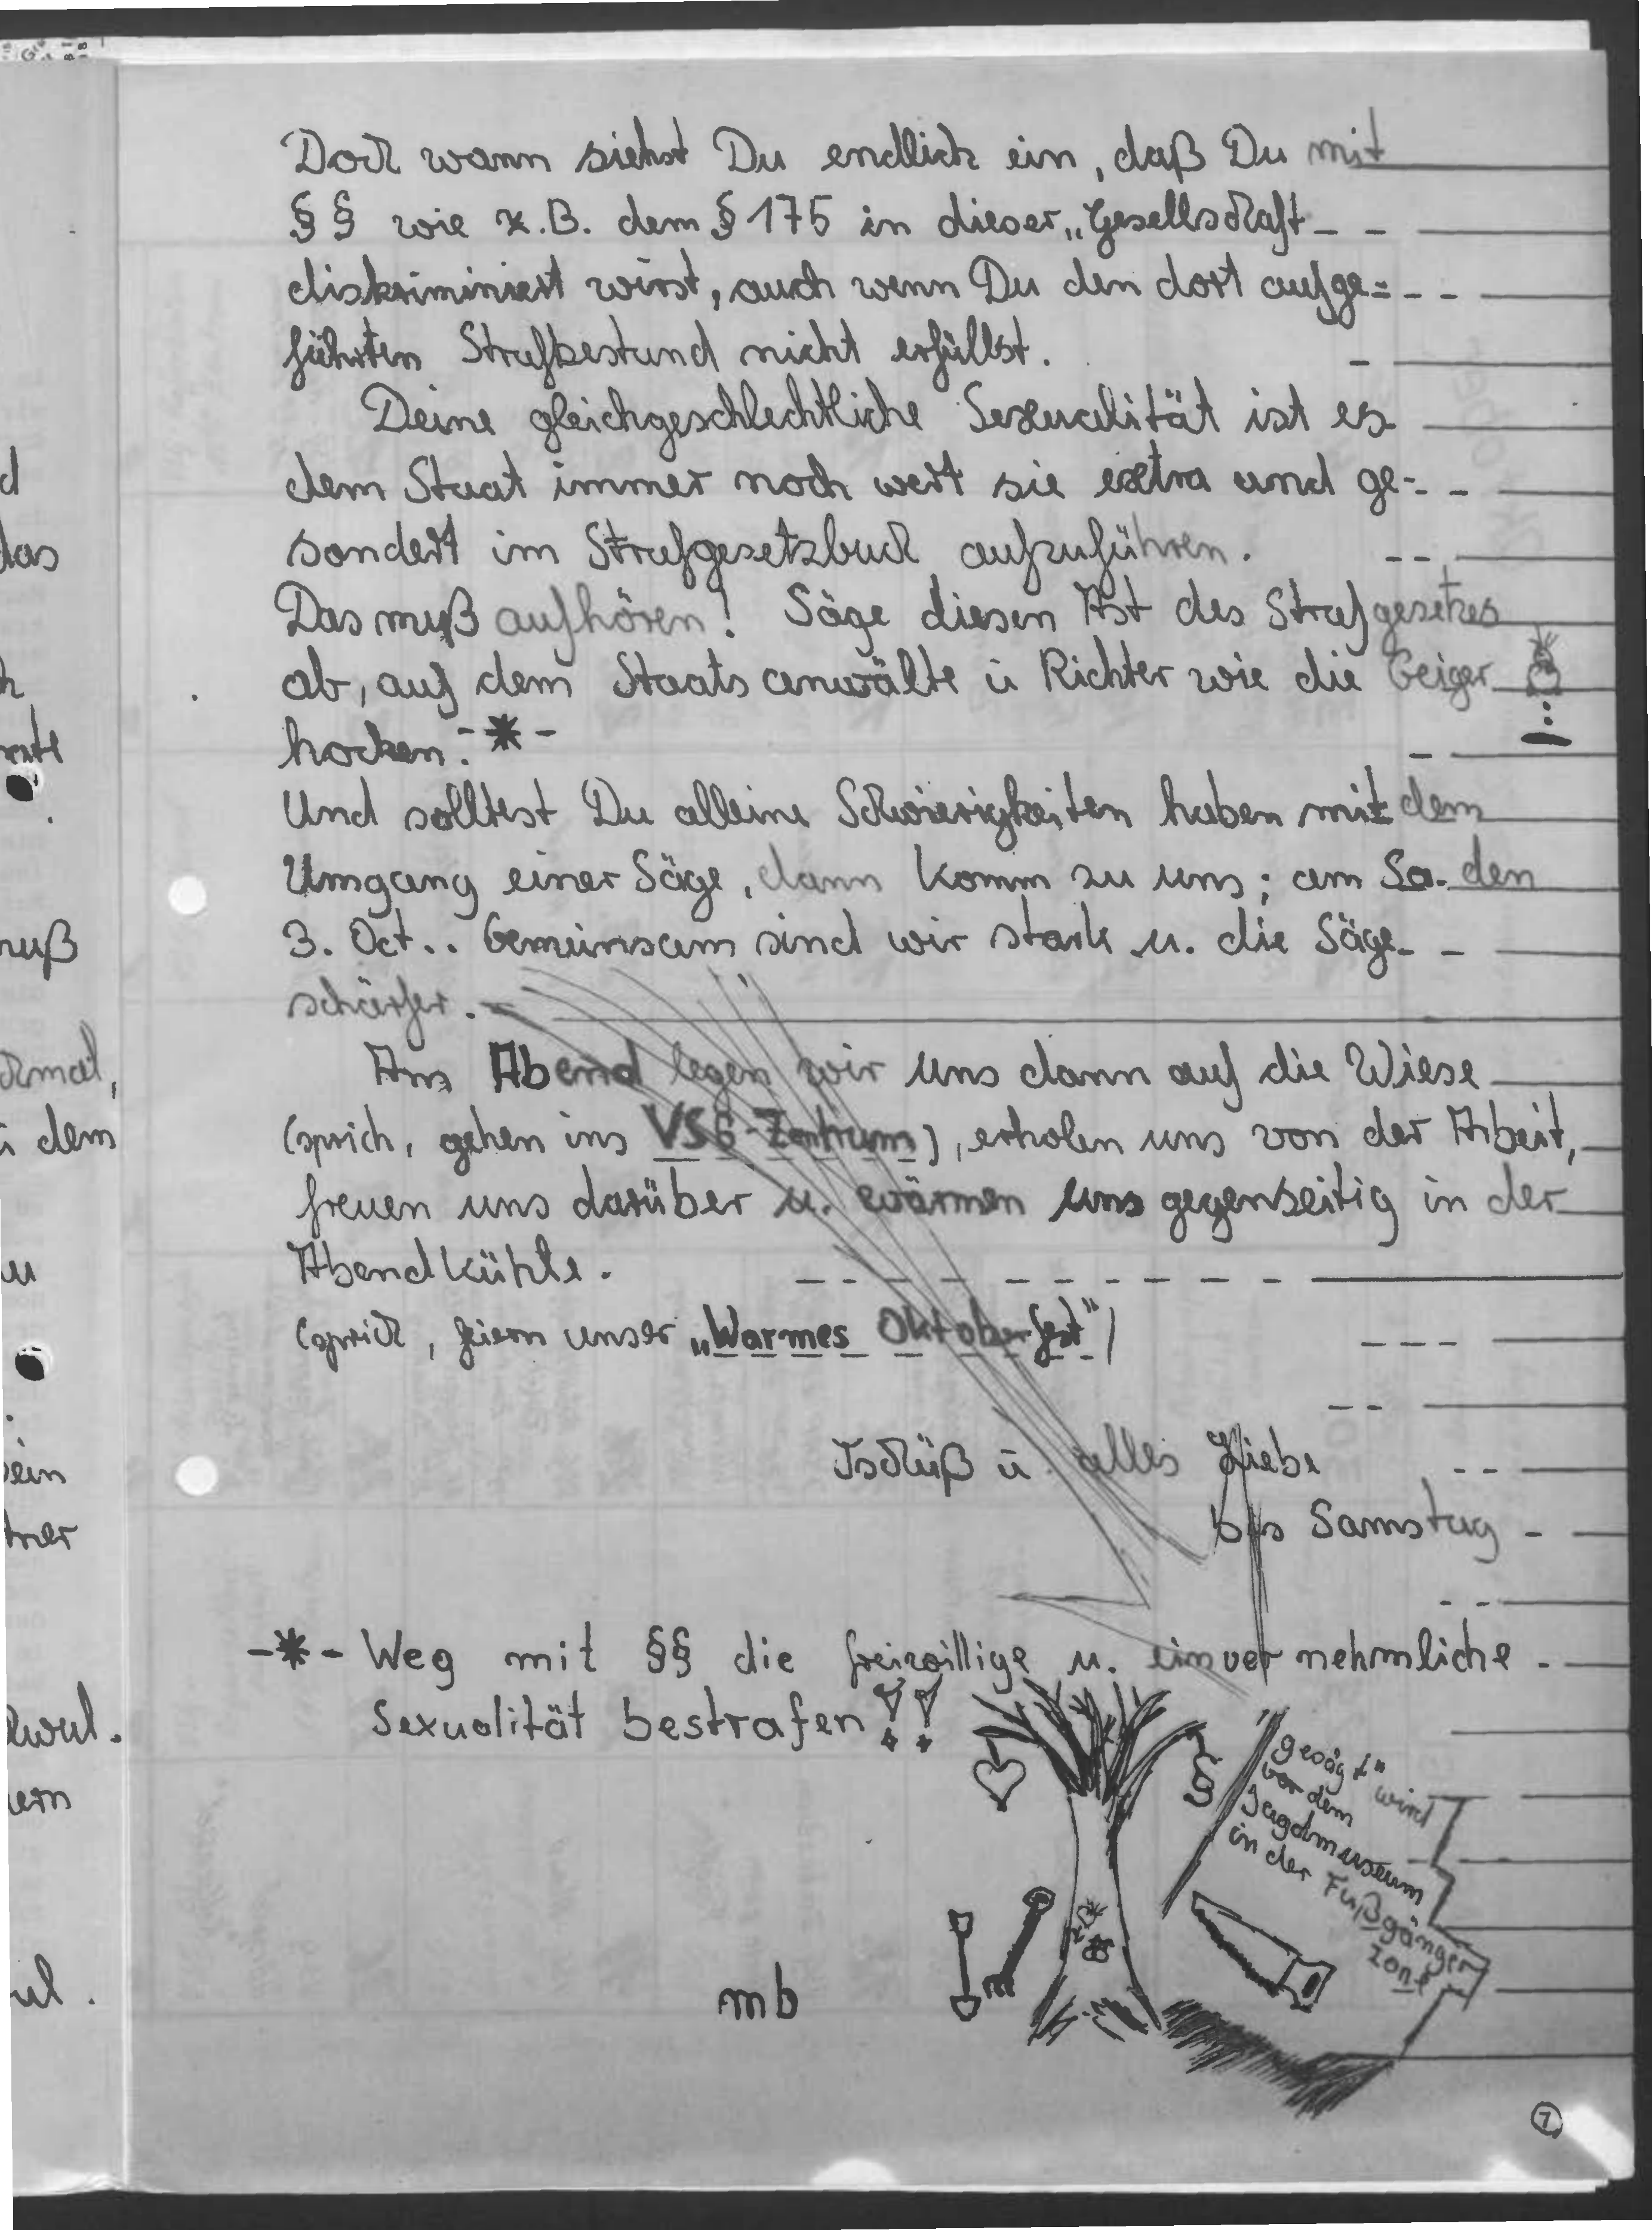 Doch wann siehst Du endlich ein, daß Du mit
§§ wie z.B. dem § 175 in dieser „Gesellschaft
diskriminiert wirst, auch wenn Du den dort aufge=
führten Strafbestand nicht erfüllst.
Deine gleichgeschlechtliche Sexualität ist es
dem Staat immer noch wert sie extra und ge-
sondert im Strafgesetzbuch aufzuführen.
Das muß aufhören! Säge diesen Ast des Strafgesetzes
ab, auf dem Staatsanwälte ü Richter wie die Geiger
hocken. -*-
Und solltest Du alleine Schwierigkeiten haben mit dem
Umgang einer Säge, dann komm zu uns; am Sa. den
3. Oct.. Gemeinsam sind wir stark u. die Säge
schärfer.
Am Abend legen wir uns dann auf die Wiese
(sprich, gehen ins VSG-Zentrum), erholen uns von der Arbeit,
freuen uns darüber u. wärmen uns gegenseitig in der
Abendkühle.
(sprich, feiern unser „Warmes Oktoberfest")
Tschüß ü alles Liebe
bis Samstag
-*- Weg mit §§ die freiwillige u. einvernehmliche
Sexualität bestrafen!!
§
gesägt" wird
vor dem
Jagdmuseum
in der Fußgänger
zone
mb
7
d
das
h
nuß
dem
u
sein
ern